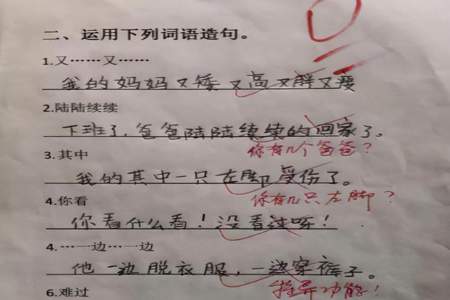 二、运用下列词语造句。
1.又……又……
我的妈妈又矮又高又胖又瘦
2.陆陆续续
下班了，爸爸陆陆续续的回家了。
你有几个爸爸？
3.其中
我的其中一只左脚受伤了。
你有几只左脚？
4.你看
你看什么看！没看过呀！
4.…一边…一边
他一边脱衣服，一边穿裤子。
6.难过